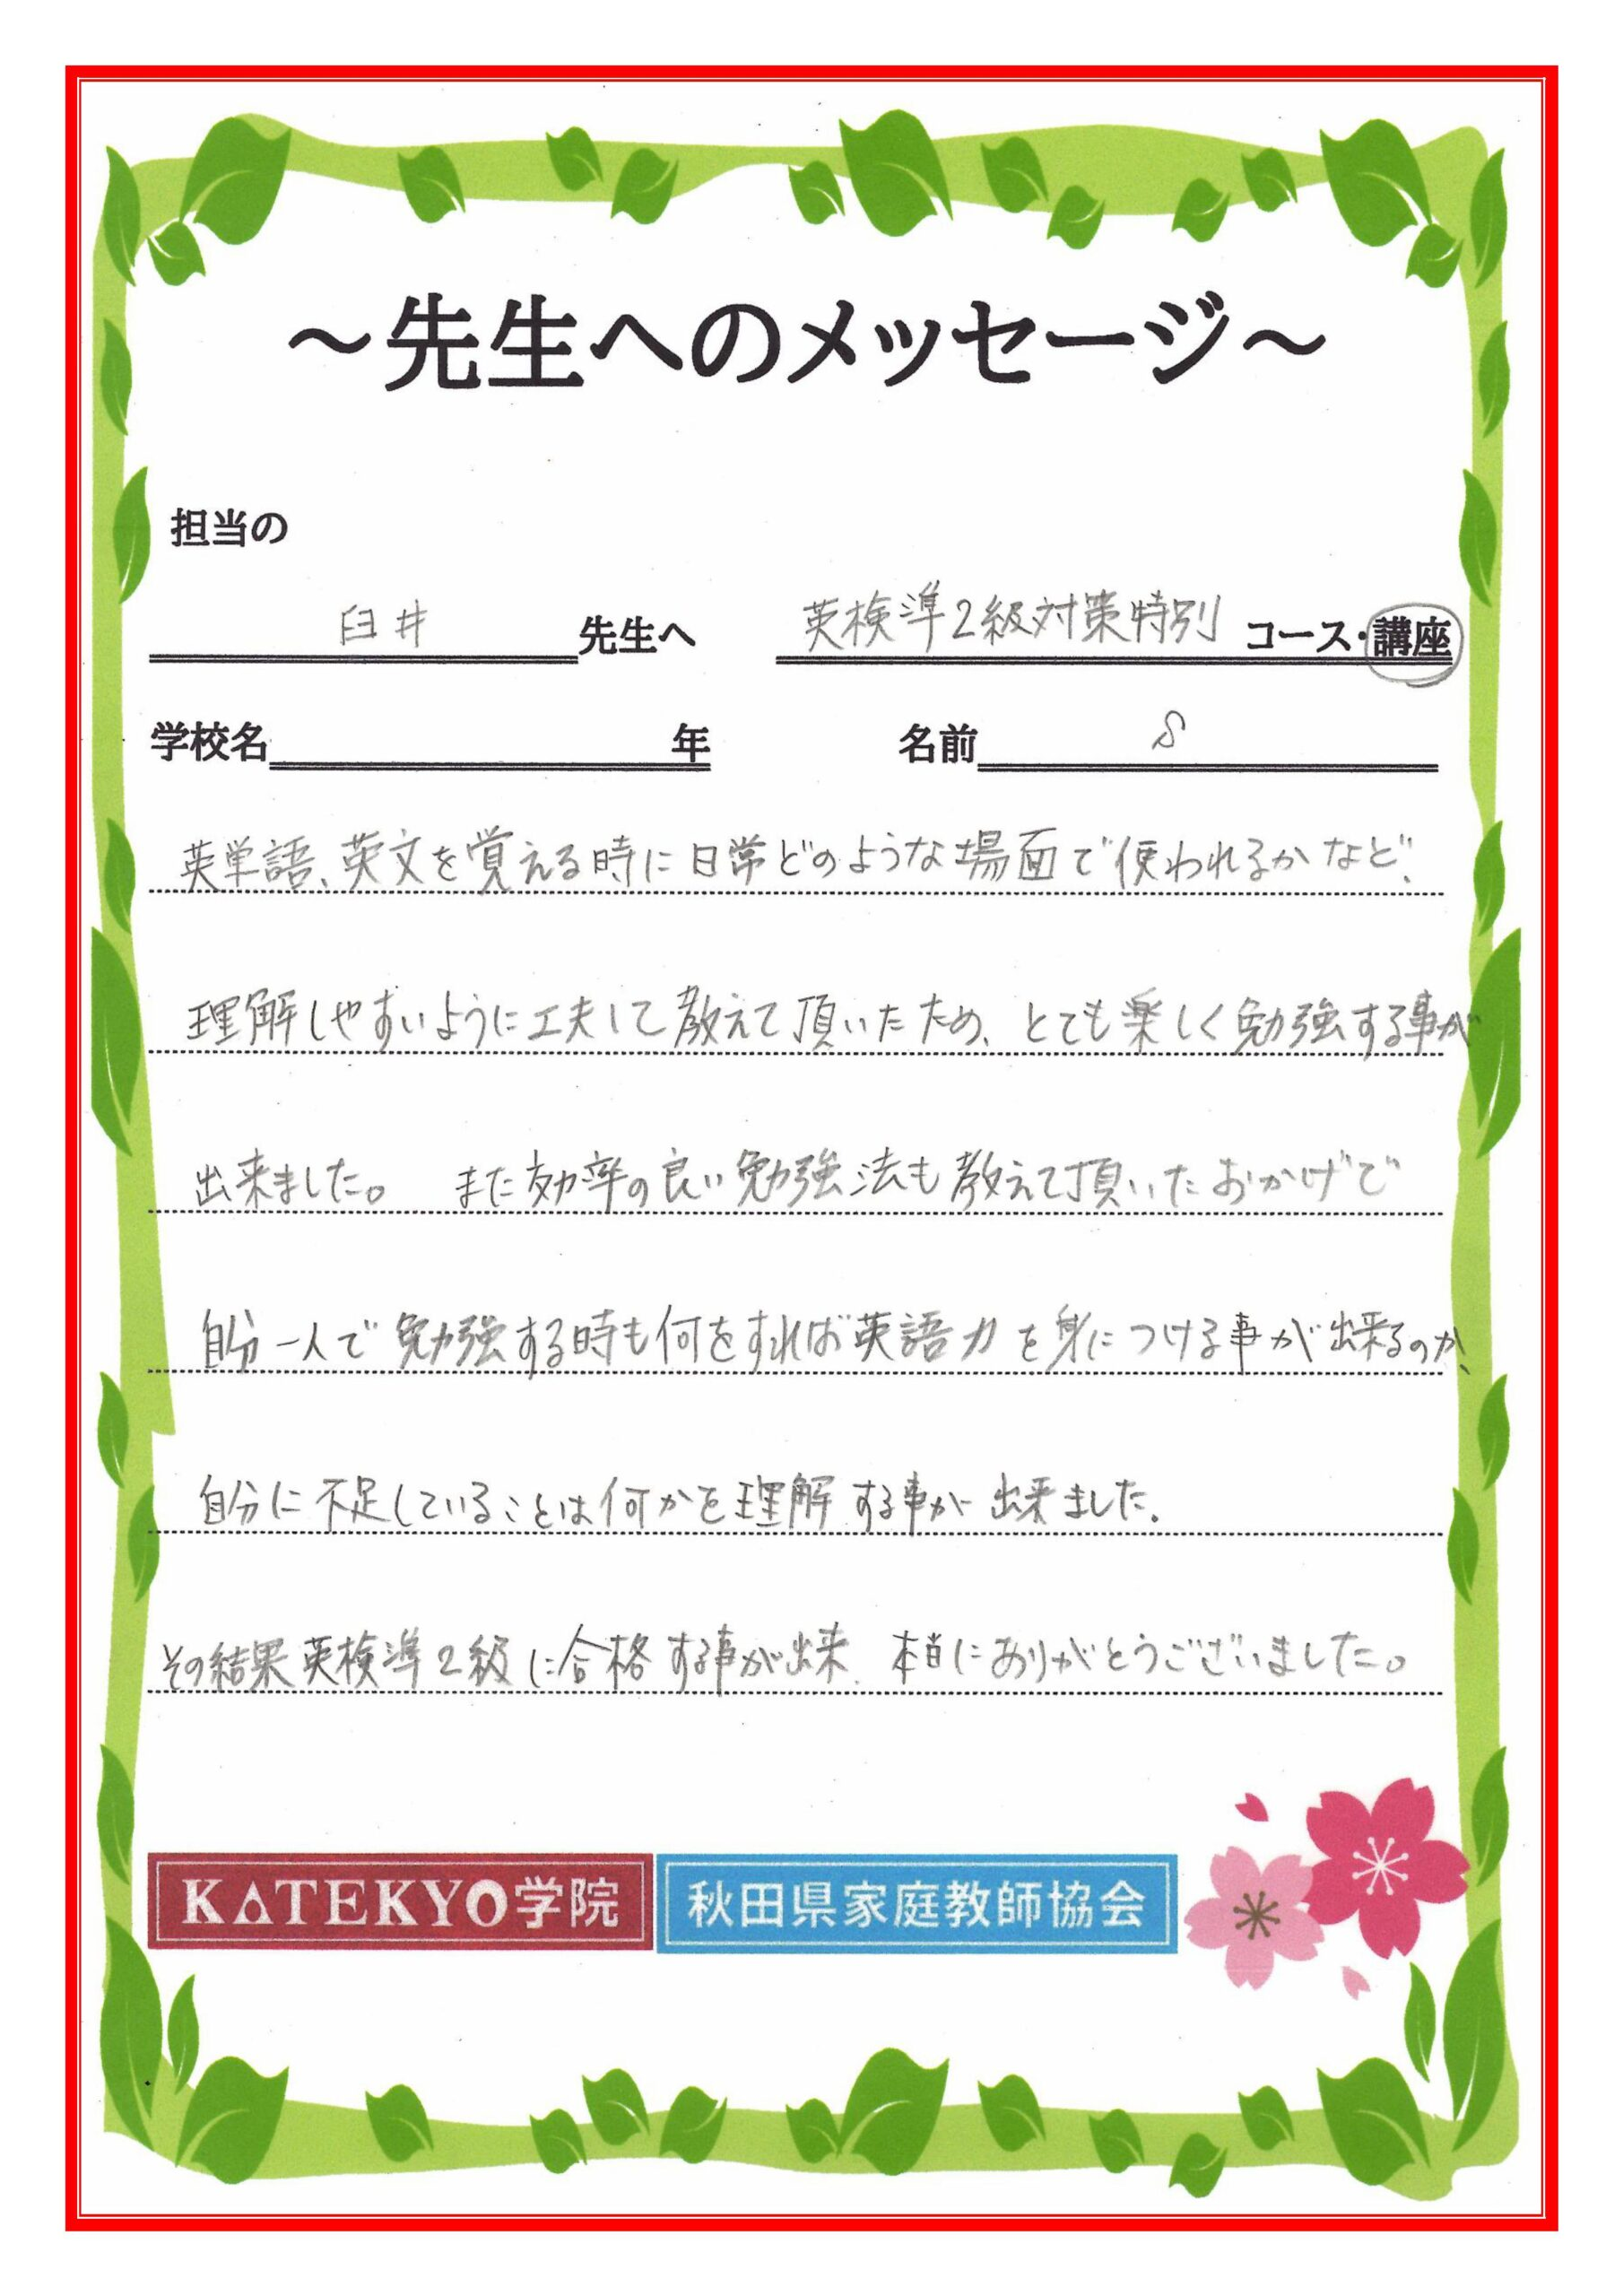 ～先生へのメッセージ～
担当の
臼井 先生へ 英検準2級対策特別 コース・講座
学校名 年 名前 S
英単語、英文を覚える時に日常どのような場面で使われるかなど、
理解しやすいように工夫して教えて頂いたため、とても楽しく勉強する事が
出来ました。 また効率の良い勉強法も教えて頂いたおかげで
自分一人で勉強する時も何をすれば英語力を身につける事が出来るのか、
自分に不足していることは何かを理解する事が出来ました。
その結果英検準2級に合格する事が出来、本当にありがとうございました。
KATEKYO学院 秋田県家庭教師協会